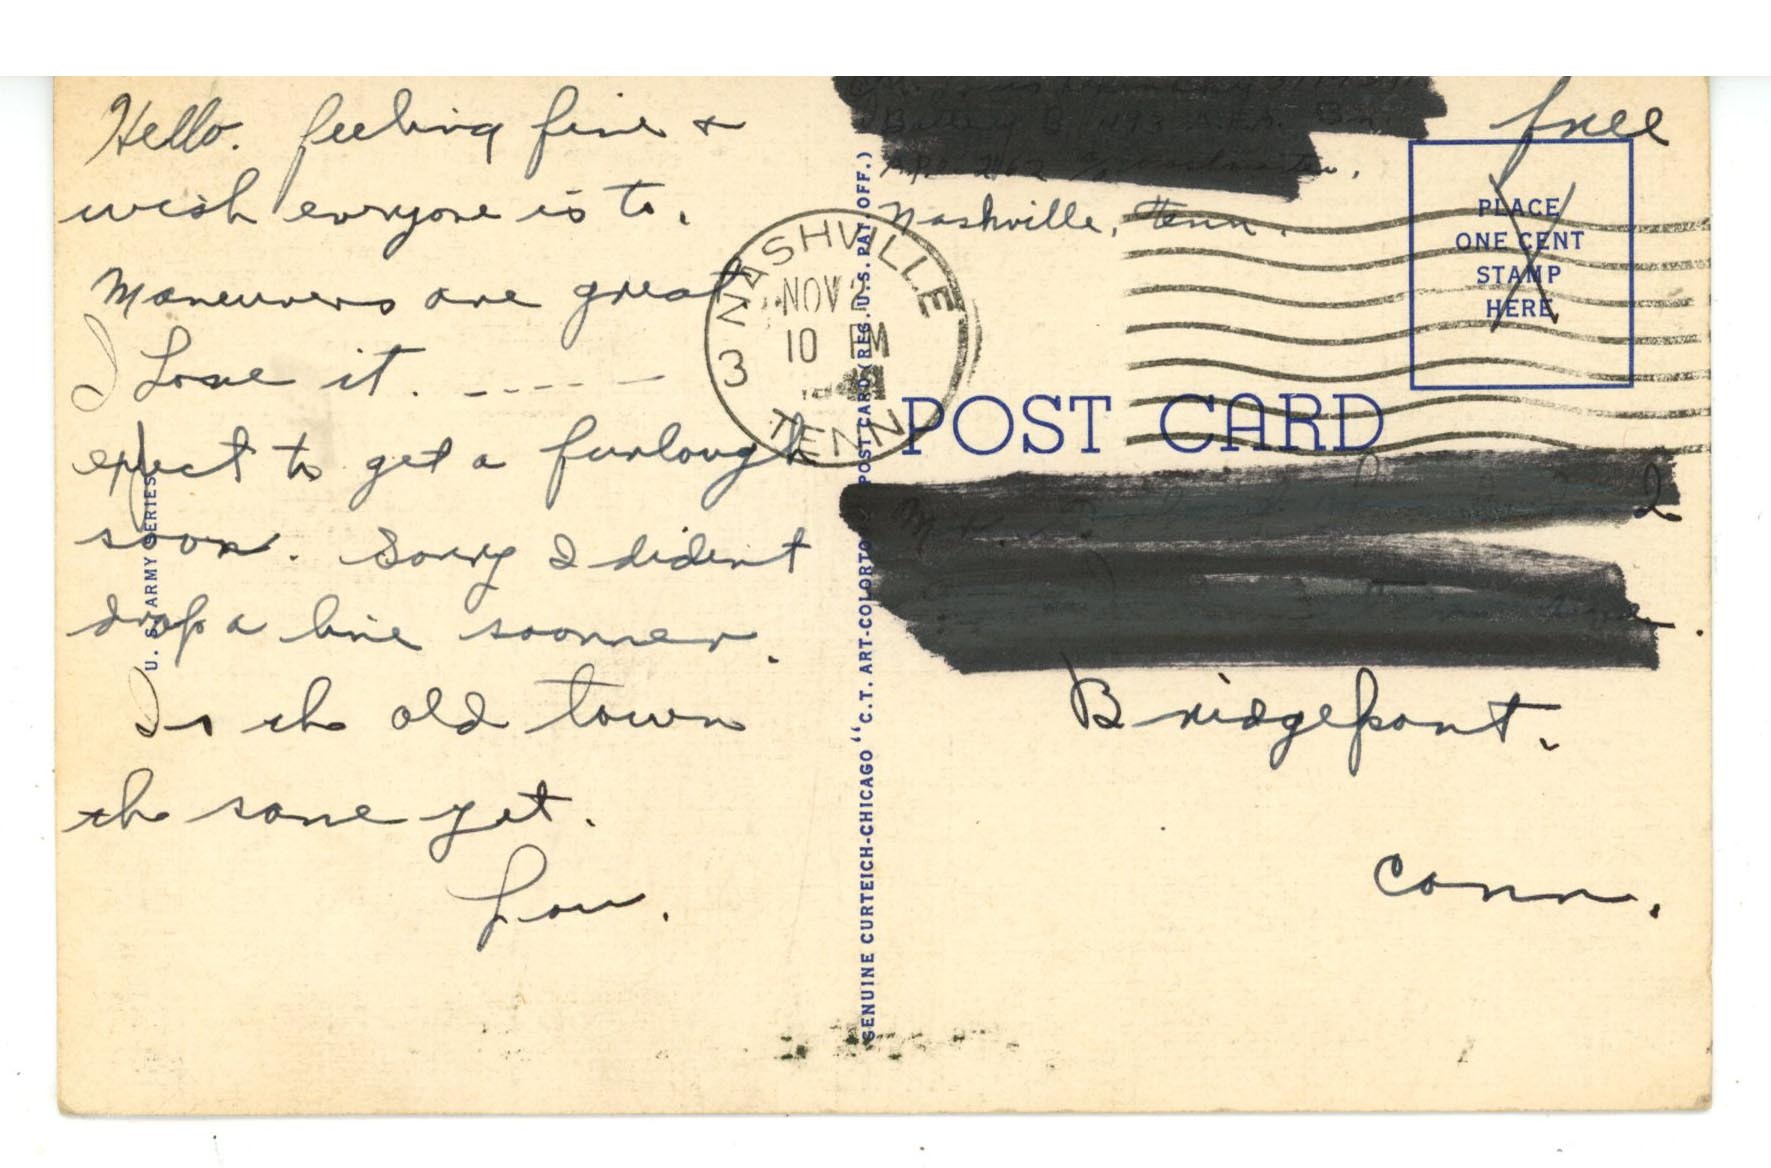 Hello. feeling fine &
wish everyone is to.
Maneuvers are great
I Love it. - - - - —
expect to get a furlough
soon. Sorry I dident
drop a line soonner.
Is the old town
the same yet.
Lou.
U. S. ARMY SERIES
GENUINE CURTEICH-CHICAGO "C.T. ART-COLORTONE" POST CARD (REG. U.S. PAT. OFF.)
Battery B, 493 A.F.A. Bn.
Nashville, Tenn.
free
PLACE
ONE CENT
STAMP
HERE
NASHVILLE
NOV 2
10 PM
3
TENN
POST CARD
Bridgeport.
Conn.